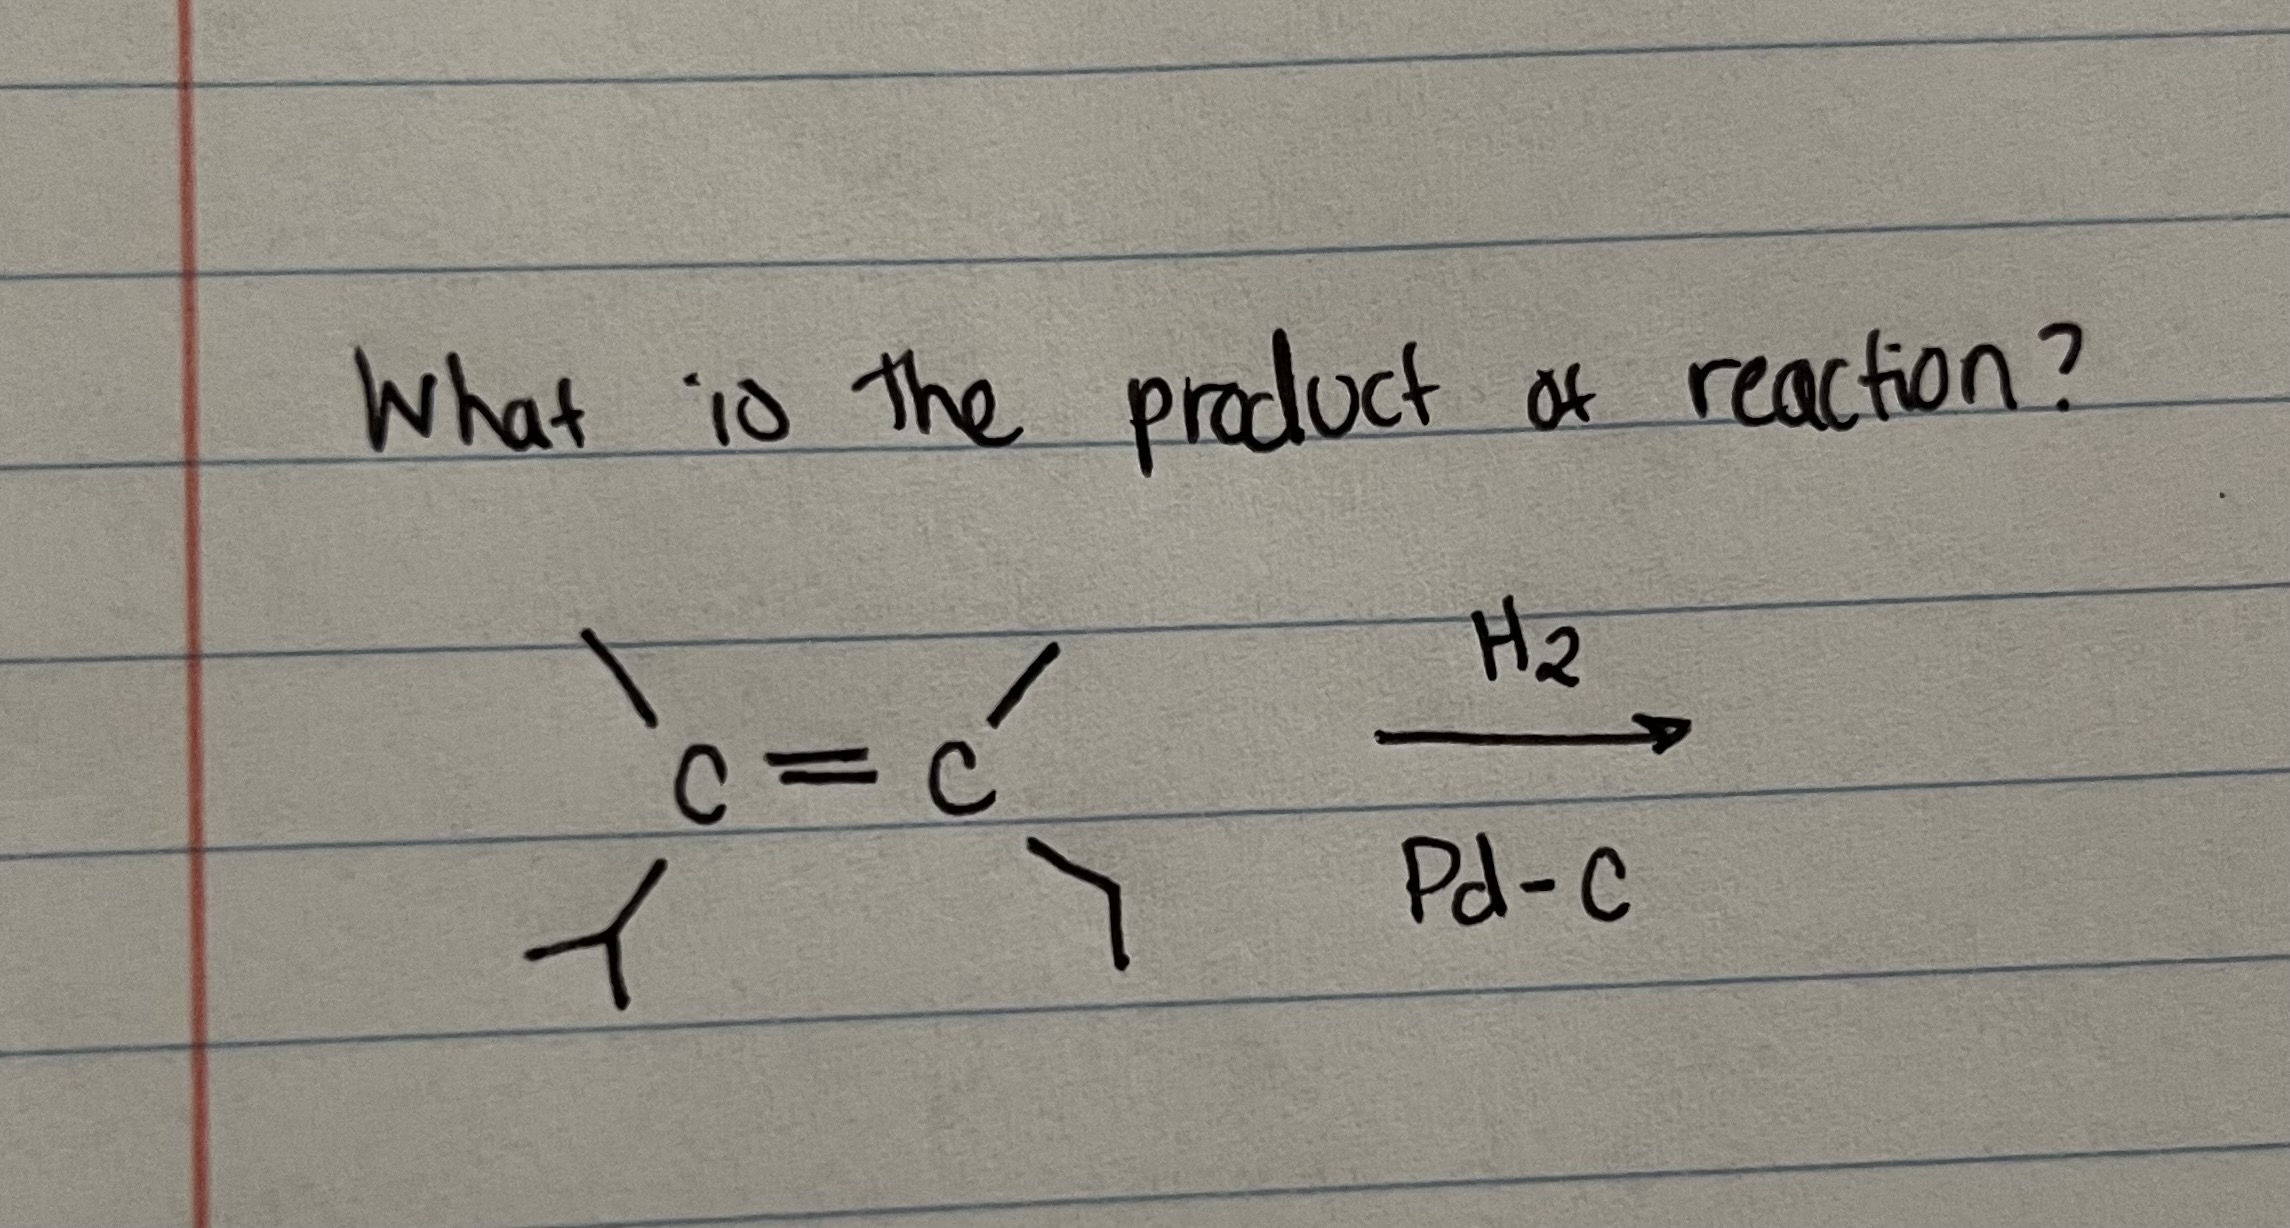 What is the product of reaction?
H2
C = C
Pd-C